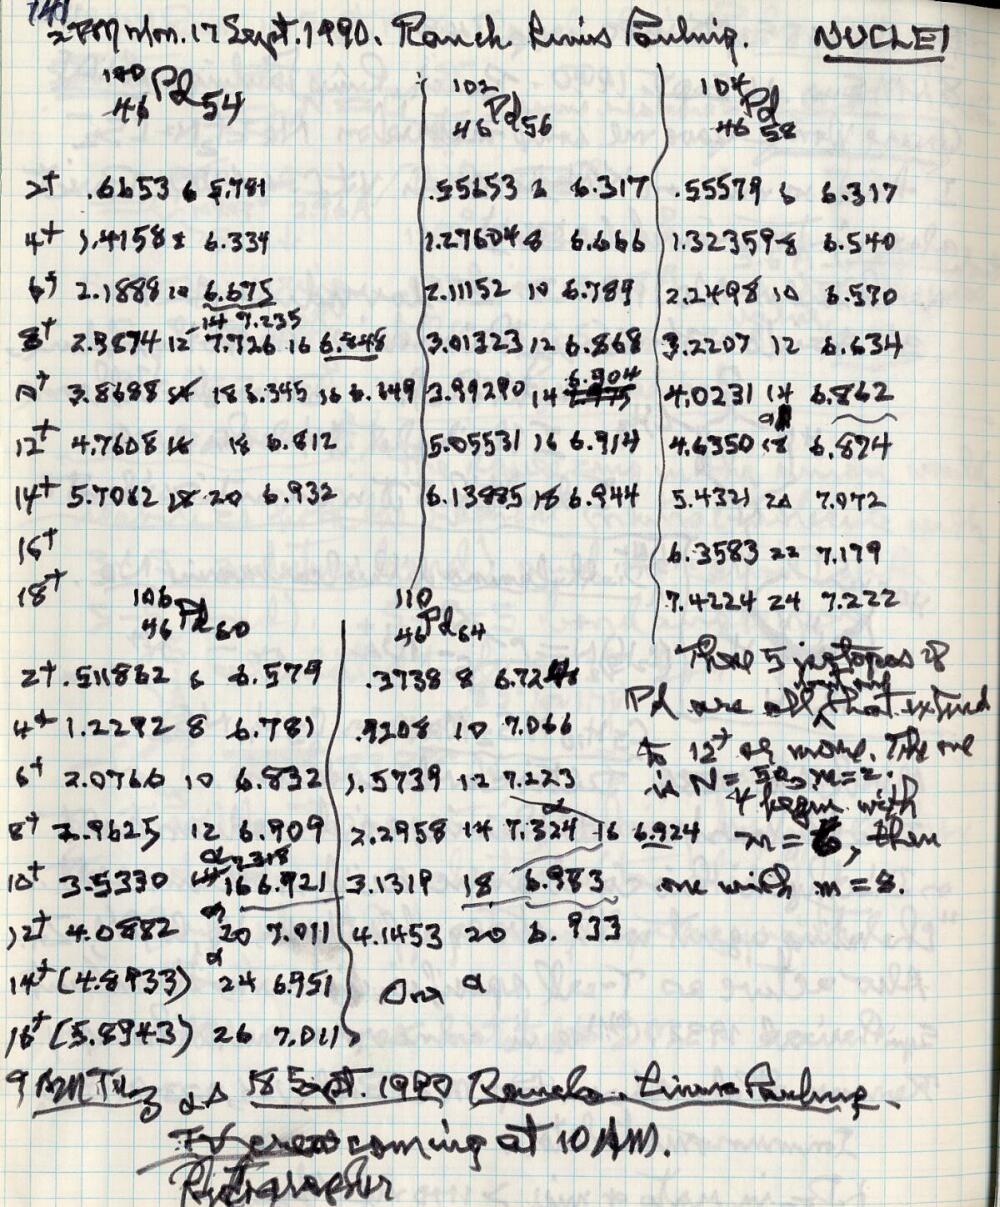 2 PM Mon. 17 Sept. 1990. Ranch. Linus Pauling. NUCLEI
100 46 Pd 54
2+ .6653 6 5.781
4+ 1.4158 8 6.334
6+ 2.1888 10 6.675
14 7.235
8+ 2.9874 12 7.726 16 6.848
10+ 3.8688 14 18 6.345 16 6.849
12+ 4.7608 16 18 6.812
14+ 5.7062 18 20 6.932
16+
18+
102 46 Pd 56
.55653 6 6.317
1.27604 8 6.666
2.11152 10 6.789
3.01323 12 6.868
6.904
3.99290 14
5.05531 16 6.914
6.13885 18 6.944
104 46 Pd 58
.55579 6 6.317
1.32359 8 6.540
2.2498 10 6.570
3.2207 12 6.634
4.0231 14 6.862
α
4.6350 18 6.874
5.4321 20 7.072
6.3583 22 7.179
7.4224 24 7.222
106 46 Pd 60
2+ .511862 6 6.579
4+ 1.2292 8 6.781
6+ 2.0766 10 6.832
8+ 2.9625 12 6.909
α 7.318
10+ 3.5330 14 16 6.921
12+ 4.0882 20 7.011
α
14+ (4.8933) 24 6.951
16+ (5.8943) 26 7.011
110 46 Pd 64
.3738 8 6.724
.9208 10 7.066
1.5739 12 7.223
α
2.2958 14 7.324 16 6.924
3.1319 18 6.983
4.1453 20 6.933
One α
These 5 isotopes of
Pd are all that extend
to 12+ or more. The one
is N = 50, m = 2.
4 begin with
m = 6, then
one with m = 8.
9 AM Tu 18 Sept. 1990 Ranch. Linus Pauling.
TV crew coming at 10 AM.